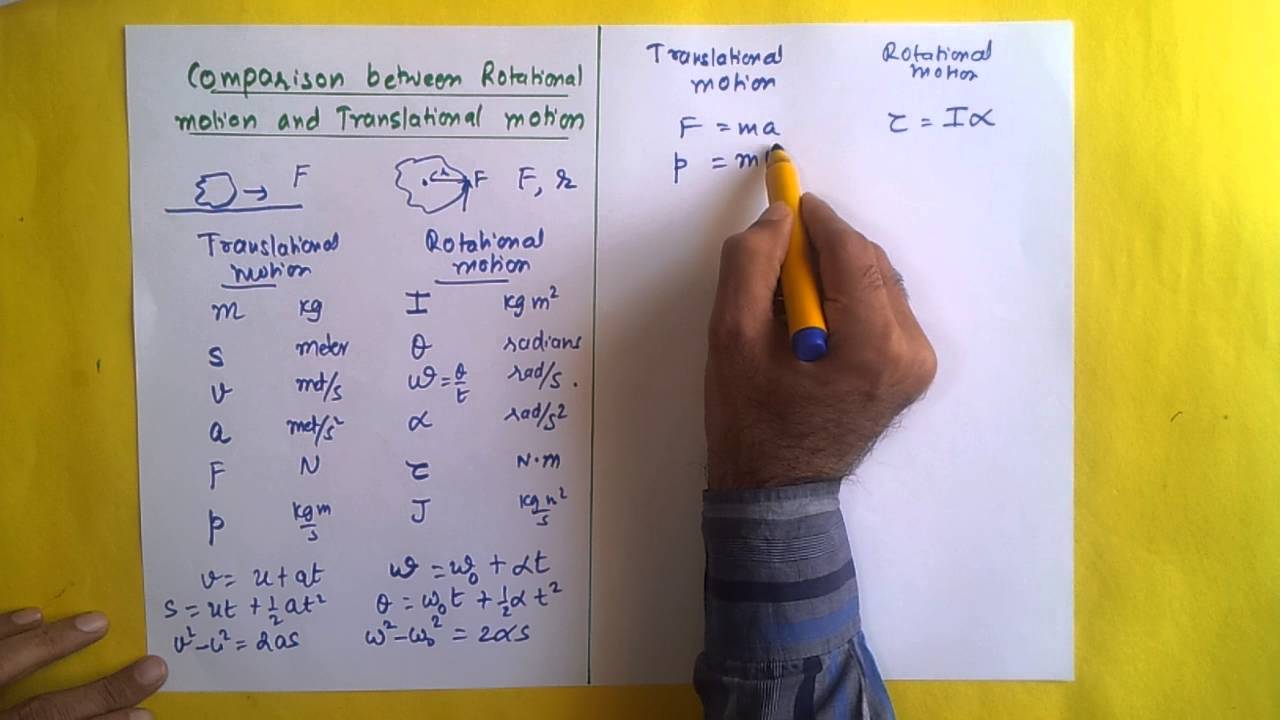 Comparison between Rotational
motion and Translational motion
F
r F F, r
Translational motion
Rotational motion
m kg I kgm²
s meter θ radians
v met/s ω = θ/t rad/s.
a met/s² α rad/s²
F N τ N·m
p kgm/s J kgm²/s
v = u + at ω = ω₀ + αt
s = ut + ½at² θ = ω₀t + ½αt²
v² - u² = 2as ω² - ω₀² = 2αs
Translational motion
Rotational motion
F = ma τ = Iα
p = m